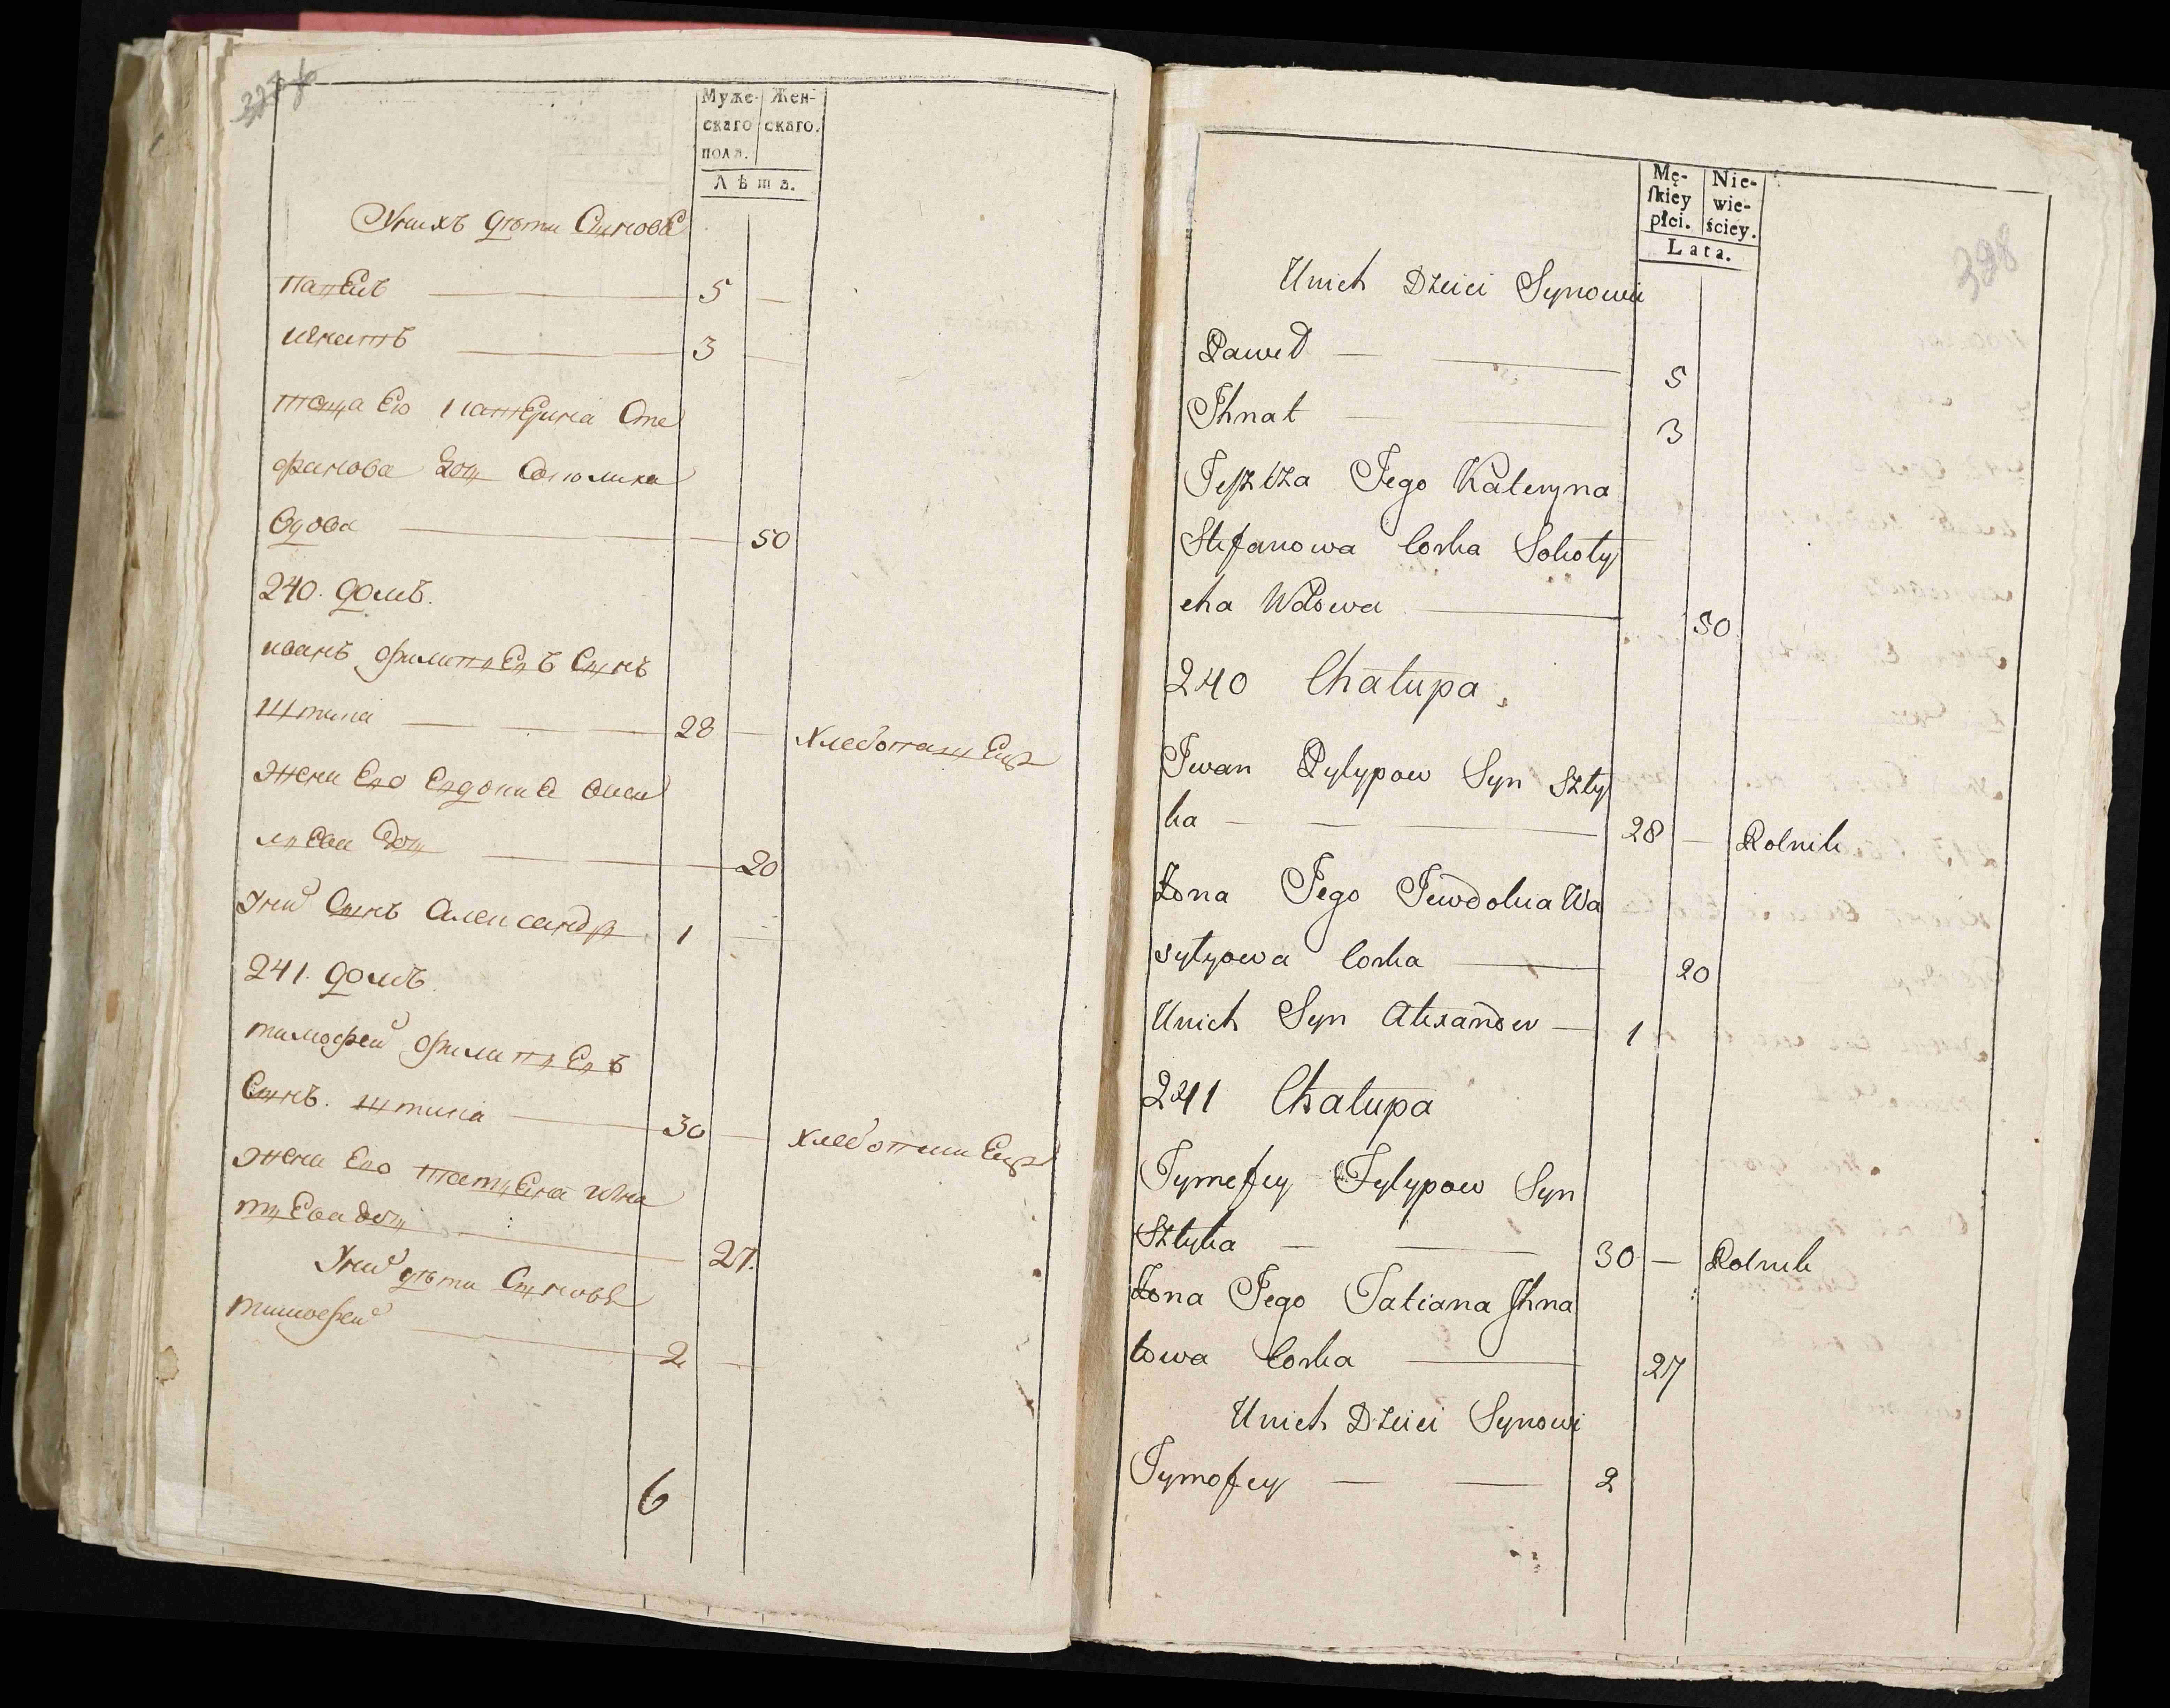 Муже- Жен-
скаго скаго.
пола.
Лѣта.
Унихъ дѣти Сынове
павелъ 5
игнатъ 3
теща Ево катерина Сте
фанова доч
вдова 50
240. домъ.
иванъ филиповъ Сынъ
штика 28 хлебопашецъ
жена Ево Евдокиа васи
лѣева доч 20
Уних Сынъ Александръ 1
241. домъ.
тимофей филиповъ
Сынъ. штика 30 хлебопашецъ
жена Ево татьяна игна
тьева доч 27.
Уних дѣти Сынове
тимофей 2
6
Mę- Nie-
skiey wie-
płci. ściey.
Lata.
398
Unich Dzieci Synowie
Paweł 5
Ihnat 3
Teszcza Jego Kateryna
Stefanowa Corka Sokoły
cha Wdowa 50
240 Chałupa.
Iwan Pylypow Syn Szty
ka 28 — Rolnik
Zona Jego Jewdokia Wa
syłyowa Corka 20
Unich Syn Alexander 1
241 Chałupa
Tymofey Fylypow Syn
Sztyka 30 — Rolnik
Zona Jego Tatiana Ihna
towa Corka 27
Unich Dzieci Synowi
Tymofey 2